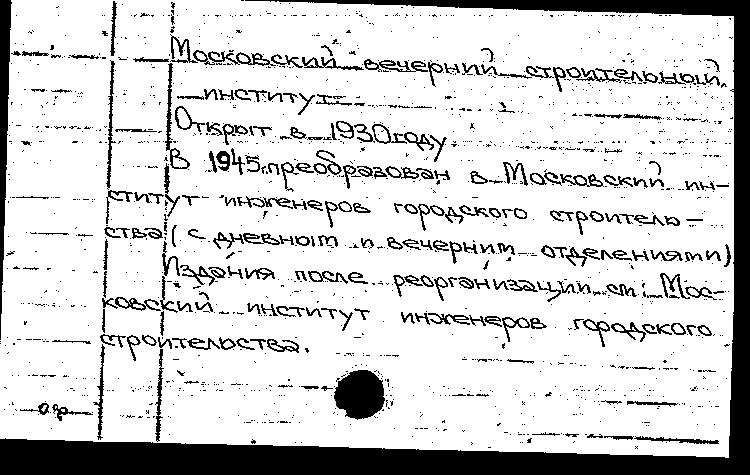 Московский вечерний строительный
институт
Открыт в 1930 году
В 1945г. преобразован в Московский ин-
ститут инженеров городского строитель-
ства (с дневным и вечерним отделениями)
Издания после реорганизации см: Мос-
ковский институт инженеров городского
строительства.